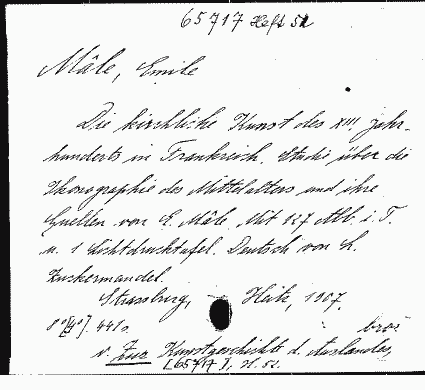 65717 Heft 52
Mâle, Emile
Die kirchliche Kunst des XIII. Jahr-
hunderts in Frankreich. Studie über die
Ikonographie des Mittelalters und ihre
Quellen von E. Mâle. Mit 127 Abb. i. T.
u. 1 Lichtdrucktafel. Deutsch von L.
Zuckermandel.
Strassburg, Heitz, 1907.
8°[4°]. 441 S. bros
v. Zur Kunstgeschichte d. Auslandes,
[65717], H. 52.